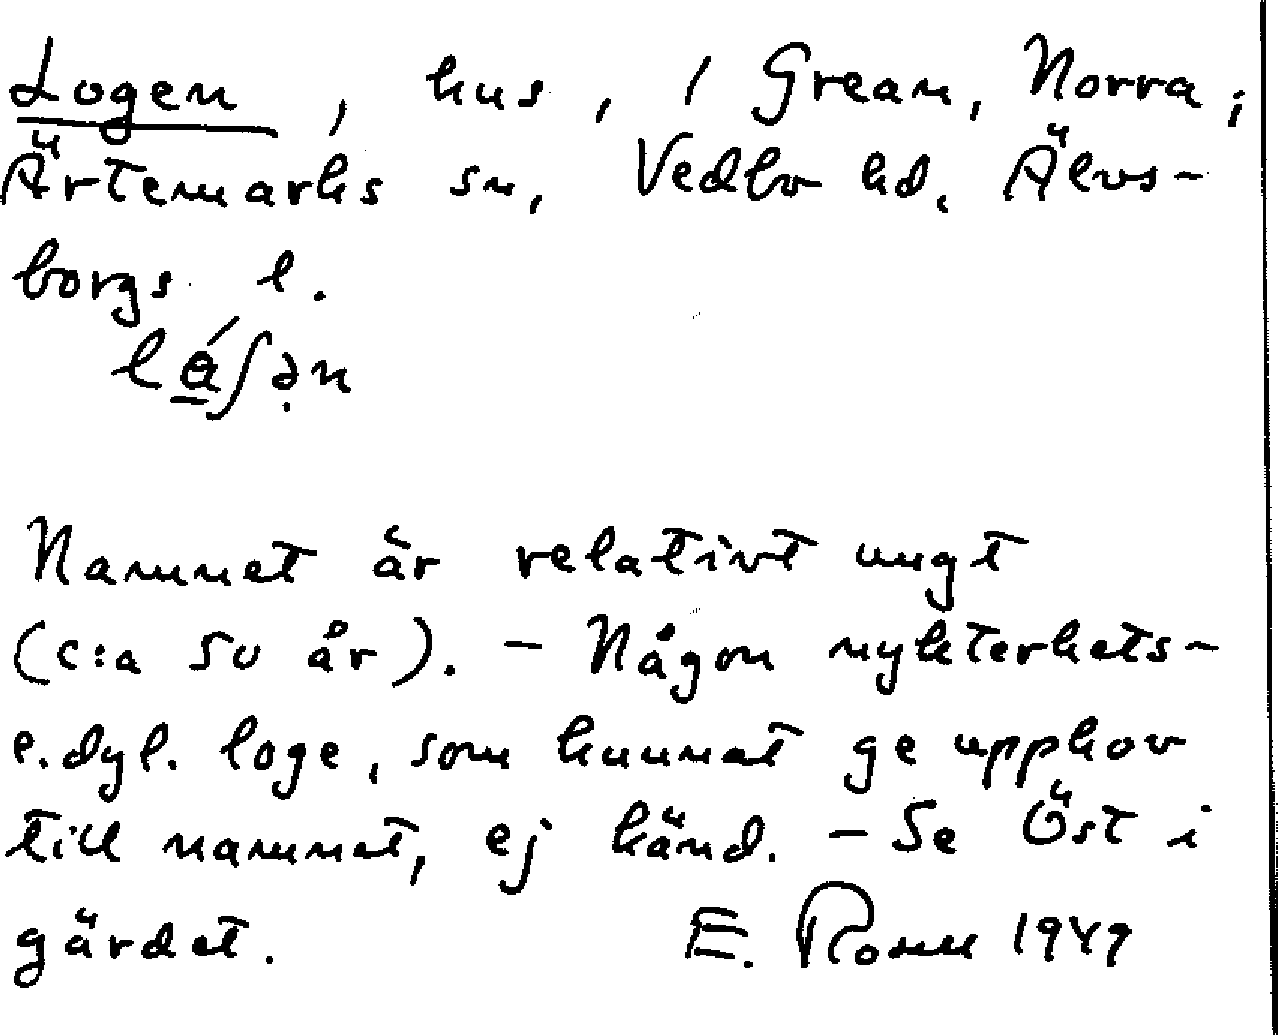 Logen, hus, i Grean, Norra;
Ärtemarks sn, Vedbo hd, Älvs-
borgs l.
Namnet är relativt ungt
(c:a 50 år). – Någon nykterhets-
e.dyl. loge, som kunnat ge upphov
till namnet, ej känd. – Se Öst i
gärdet. E. 1949